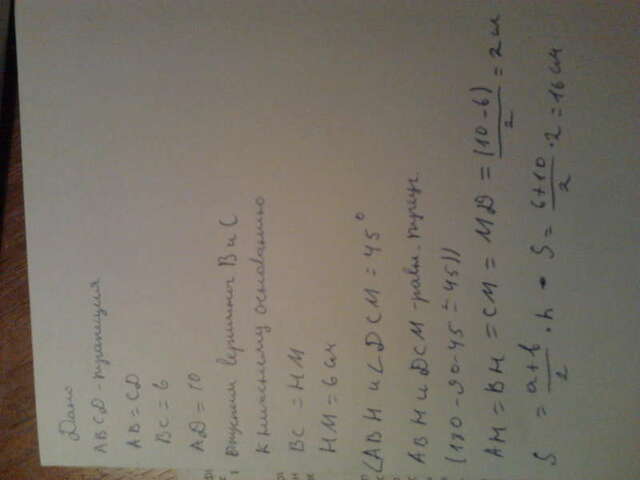 Дано
ABCD - трапеция
AB = CD
BC = 6
AD = 10
Опустим вершины B и C
к нижнему основанию
BC = HM
HM = 6 см
∠ABH и ∠DCM = 45°
ABH и DCM - равн. треуг.
(180-90-45=45))
AH = BH = CM = MD = (10-6)/2 = 2 см
S = (a+b)/2 · h · S = (6+10)/2 · 2 = 16 см